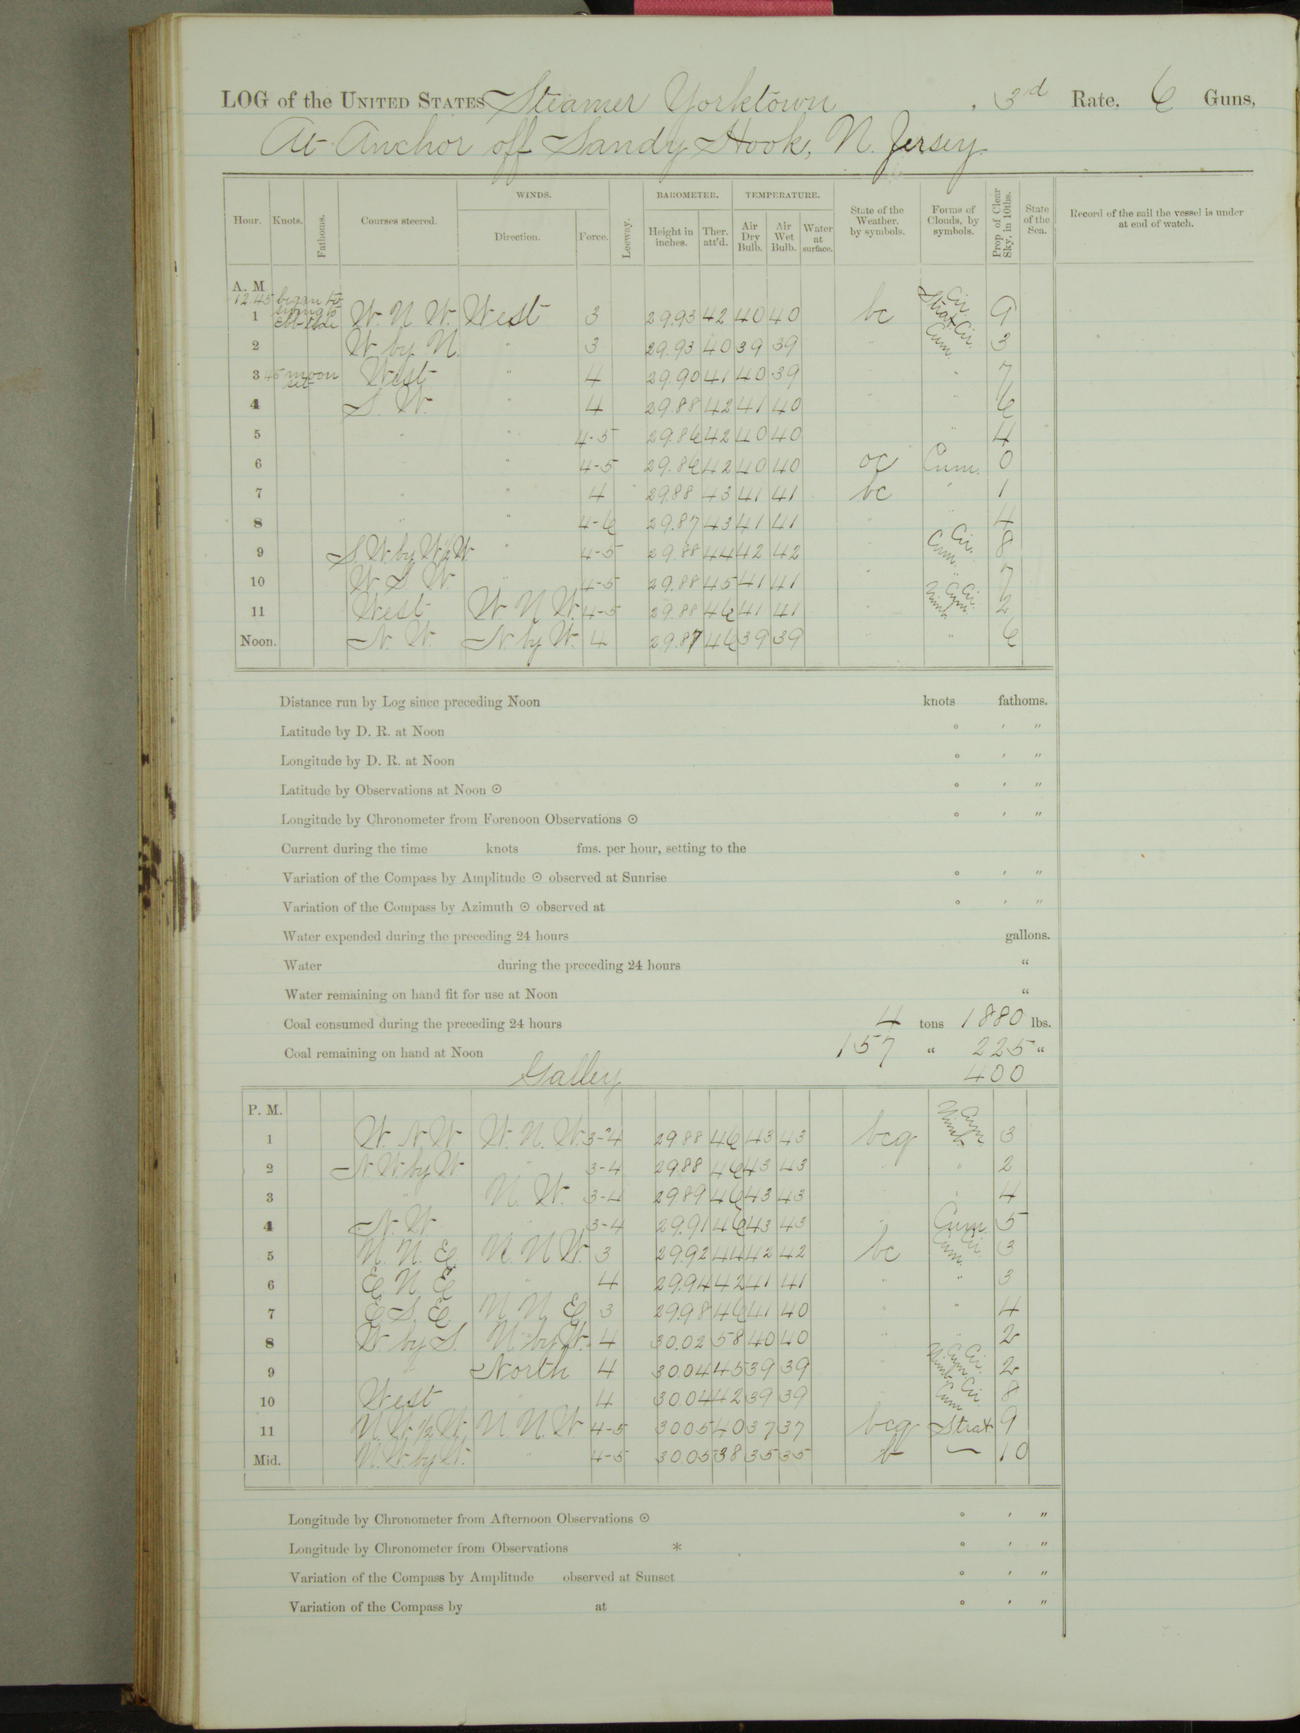 LOG of the UNITED STATES Steamer Yorktown, 3d Rate. 6 Guns,
At Anchor off Sandy Hook, N. Jersey.
WINDS. BAROMETER. TEMPERATURE.
Hour. Knots. Fathoms. Courses steered. Direction. Force. Leeway. Height in inches. Ther. att'd. Air Dry Bulb. Air Wet Bulb. Water at surface. State of the Weather, by symbols. Forms of Clouds, by symbols. Prop of Clear Sky, in 10ths. State of the Sea. Record of the sail the vessel is under at end of watch.
A. M.
12.45 began to swing to ebb tide
1 W. N. W. West 3 29.93 42 40 40 bc Cir. Strat 9
2 W by N. " 3 29.93 40 39 39 " Cir. Cum. 3
3 45 moon set West " 4 29.90 41 40 39 " " 7
4 S. W. " 4 29.88 42 41 40 " " 6
5 " " 4-5 29.86 42 40 40 " 4
6 " 4-5 29.86 42 40 40 oc Cum. 0
7 " " 4 29.88 43 41 41 bc " 1
8 " " 4-6 29.87 43 41 41 " " 4
9 S W by W ½ W " 4-5 29.88 44 42 42 " Cir. Cum. 8
10 W. S. W. " 4-5 29.88 45 41 41 " " 7
11 West W. N. W. 4-5 29.88 46 41 41 " Cir. Cum. Nimb. 2
Noon. N. W. N. by W. 4 29.87 46 39 39 " " 6
Distance run by Log since preceding Noon knots fathoms.
Latitude by D. R. at Noon ° ' "
Longitude by D. R. at Noon ° ' "
Latitude by Observations at Noon ⊙ ° ' "
Longitude by Chronometer from Forenoon Observations ⊙ ° ' "
Current during the time knots fms. per hour, setting to the
Variation of the Compass by Amplitude ⊙ observed at Sunrise ° ' "
Variation of the Compass by Azimuth ⊙ observed at ° ' "
Water expended during the preceding 24 hours gallons.
Water during the preceding 24 hours "
Water remaining on hand fit for use at Noon "
Coal consumed during the preceding 24 hours 4 tons 1880 lbs.
Coal remaining on hand at Noon 157 " 225 "
Galley 400
P. M.
1 W. N. W. W. N. W. 3-4 29.88 46 43 43 bcq Cum Nimb 3
2 N. W. by W. " 3-4 29.88 46 43 43 " " 2
3 " N. W. 3-4 29.89 46 43 43 " " 4
4 N. W. " 3-4 29.91 46 43 43 " Cum. 5
5 N. N. E. N. N. W. 3 29.92 44 42 42 bc Cir. Cum. 3
6 E. N. E. " 4 29.94 42 41 41 " " 3
7 E S E N N E 3 29.98 46 41 40 " " 4
8 W. by S. N. by W. 4 30.02 58 40 40 " " 2
9 " North 4 30.04 45 39 39 " Cir. Cum. Nimb. 2
10 West " 4 30.04 42 39 39 " Cir Cum 8
11 N. W. ½ W. N N. W 4-5 30.05 40 37 37 bcq Strat 9
Mid. N. W. by W. " 4-5 30.05 38 35 35 b — 10
Longitude by Chronometer from Afternoon Observations ⊙ ° ' "
Longitude by Chronometer from Observations * ° ' "
Variation of the Compass by Amplitude observed at Sunset ° ' "
Variation of the Compass by at ° ' "